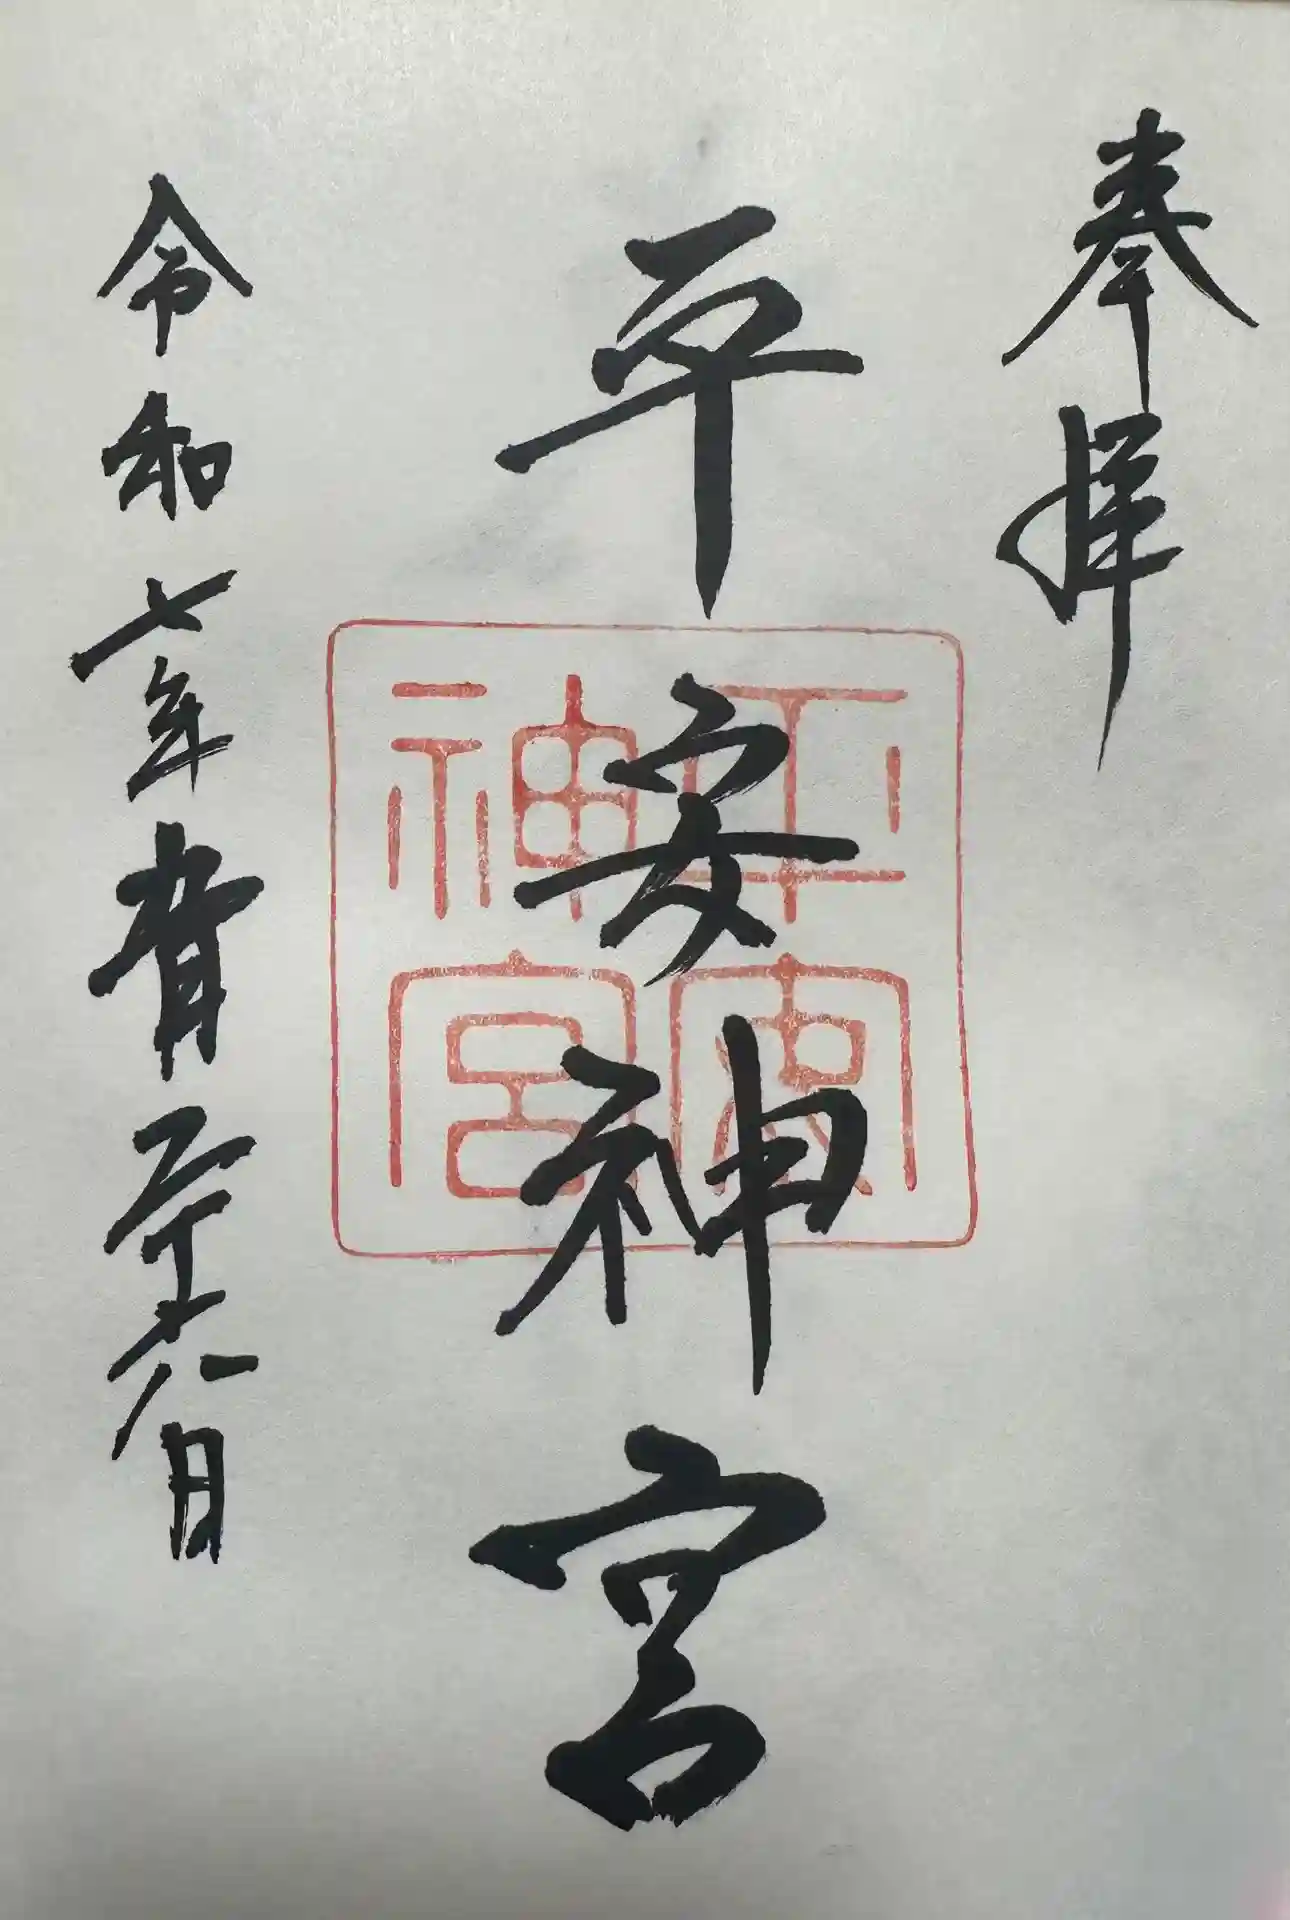 奉拝
平安神宮
平安
神宮
令和七年月二十日